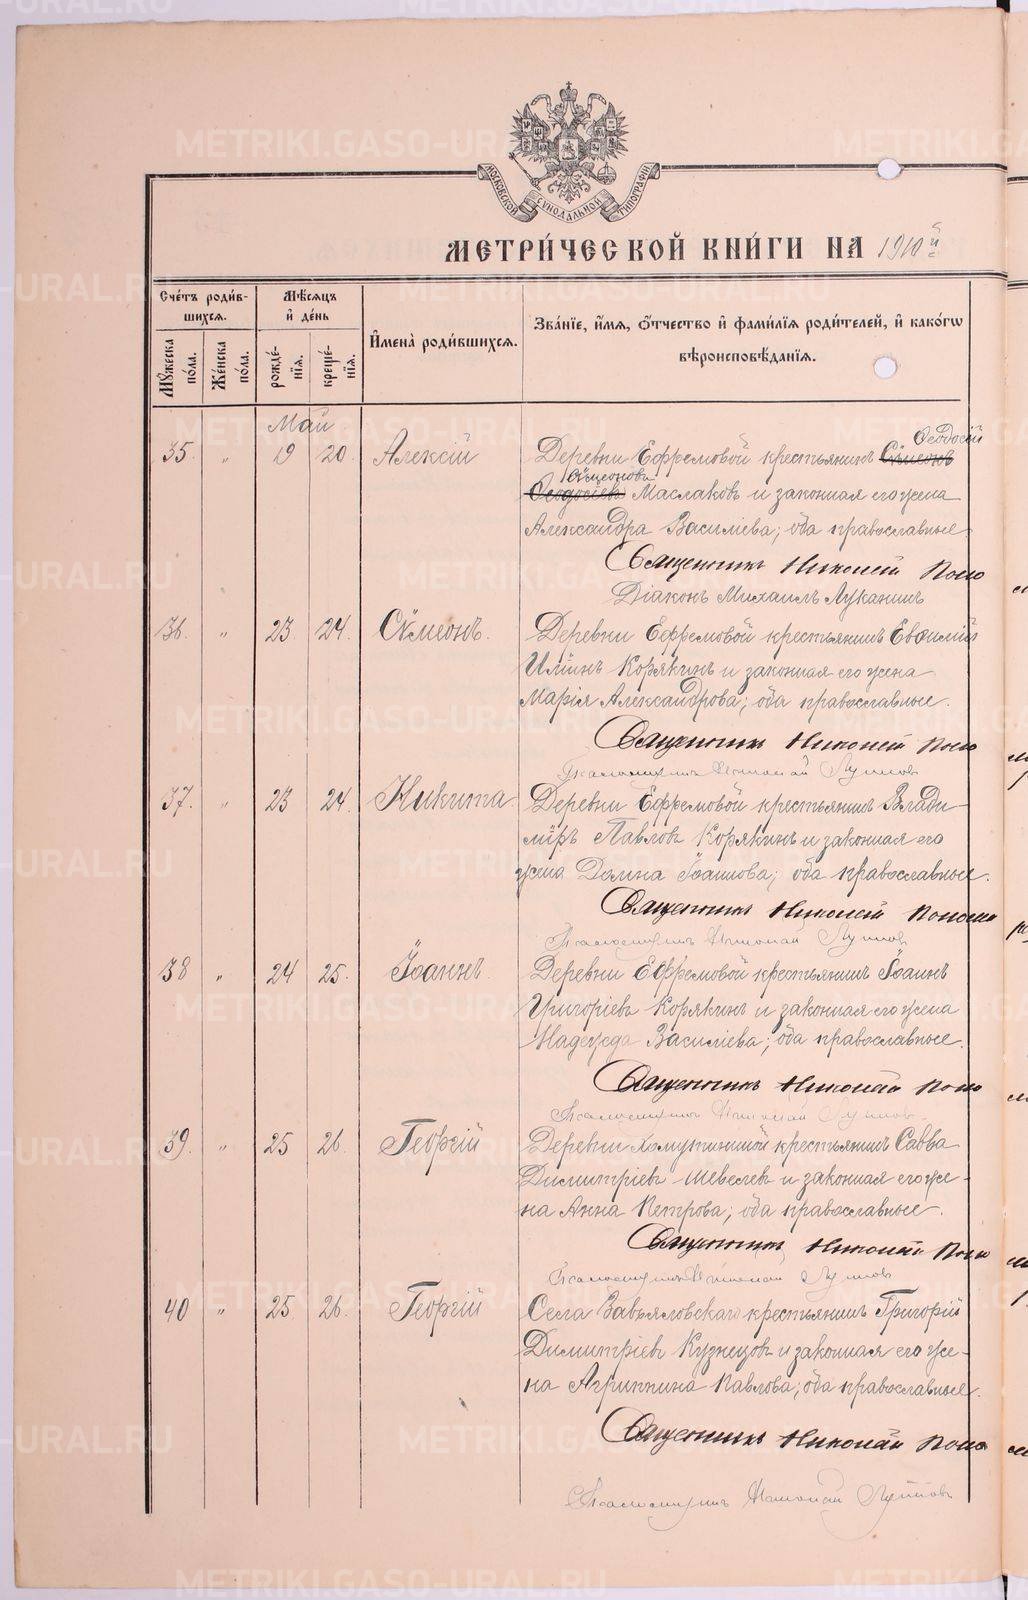 METRIKI.GASO-URAL.RU
МОСКОВСКОЙ СѴНОДАЛЬНОЙ ТИПОГРАФІИ
МЕТРИ́ЧЕСКОЙ КНИ́ГИ НА 1910 й
Сче́тъ роди́в-
шихсѧ.
Мꙋжеска
по́ла.
Же́нска
по́ла.
Мѣ́сѧцъ
и҆ де́нь
рожде́-
нїѧ.
креще́-
нїѧ.
И҆мена̀ роди́вшихсѧ.
Зва́нїе, и҆́мѧ, ѻ҆́тчество и҆ фами́лїѧ роди́телей, и҆ како́гѡ
вѣроисповѣ́данїѧ.
Май
35. „ 19 20. Алексій
Ѳеодосій
Деревни Ефремовой крестьянинъ Сѵмеонъ
Сѵмеоновъ
Ѳеодосіевъ Маслаковъ и законная его жена
Александра Василіева; оба православные.
Священникъ Николай Поно
Діаконъ Михаилъ Луканинъ
36. „ 23. 24. Сѵмеонъ.
Деревни Ефремовой крестьянинъ Евѳимій
Иліинъ Корякинъ и законная его жена
Марія Александрова; оба православные.
Священникъ Николай Поно
Псаломщикъ
37. „ 23 24. Никита
Деревни Ефремовой крестьянинъ Влади
міръ Павловъ Корякинъ и законная его
жена Домна Іоаннова; оба православные.
Священникъ Николай Поно
Псаломщикъ
38 „ 24 25. Іоаннъ.
Деревни Ефремовой крестьянинъ Іоаннъ
Григоріевъ Корякинъ и законная его жена
Надежда Василіева; оба православные.
Священникъ Николай Поно
Псаломщикъ
39. „ 25 26. Георгій
Деревни крестьянинъ Савва
Димитріевъ Шевелевъ и законная его же-
на Анна Петрова; оба православные.
Священникъ Николай Поно
Псаломщикъ
40 „ 25 26. Георгій
Села Завьяловскаго крестьянинъ Григорій
Димитріевъ Кузнецовъ и законная его же-
на Агриппина Павлова; оба православные.
Священникъ Николай Поно
Псаломщикъ